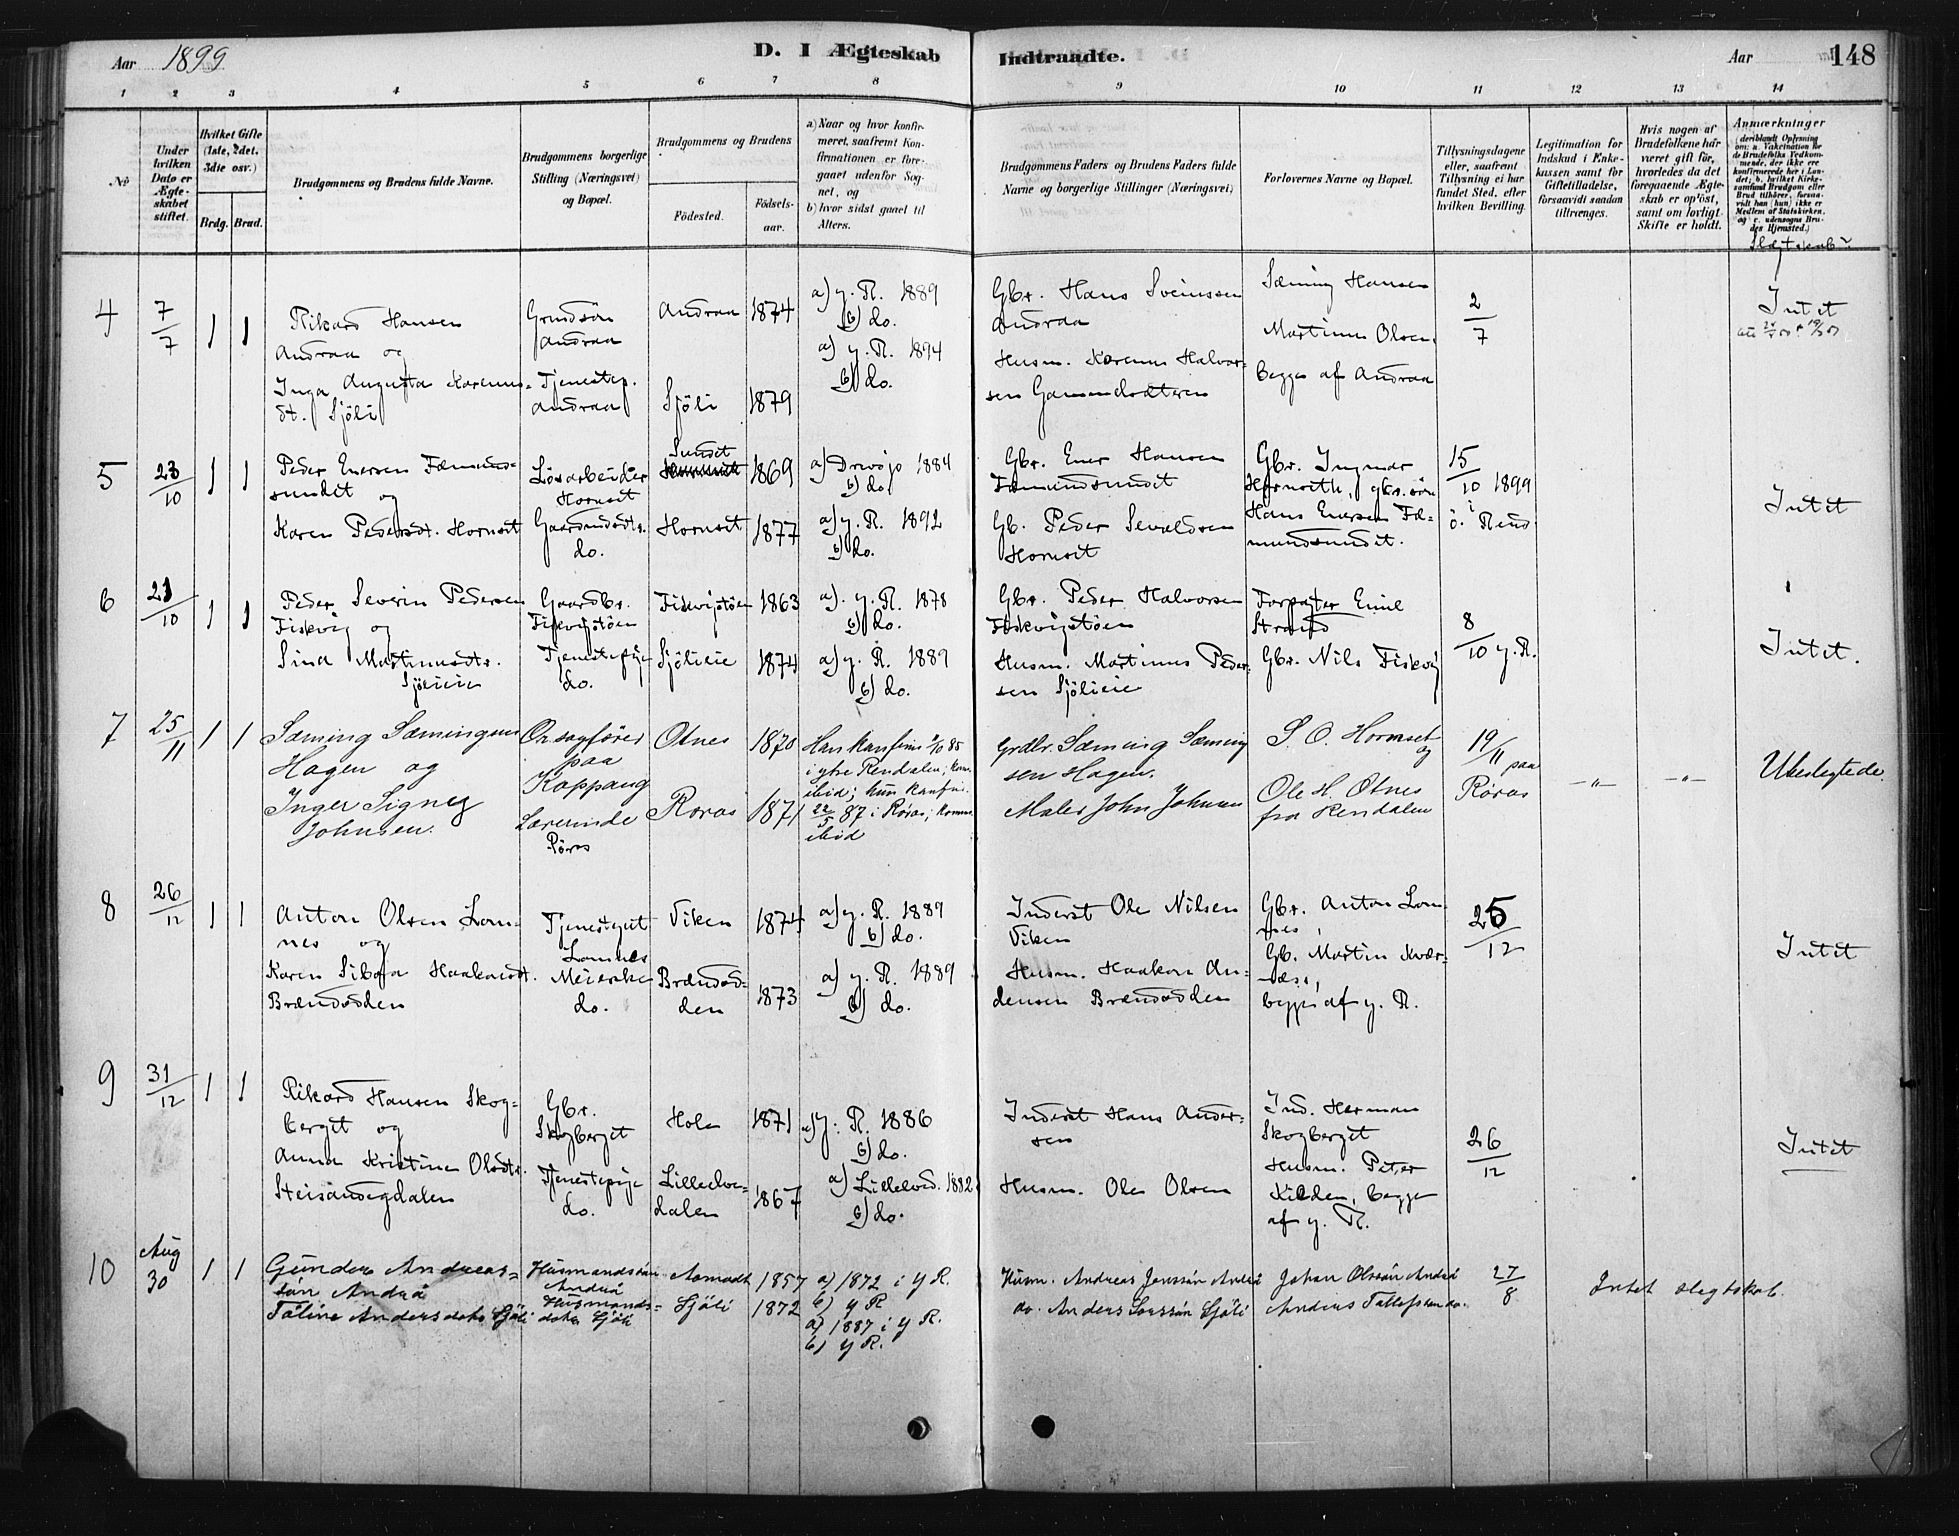 Aar 1899
D. I Ægteskab Indtraadte.
Aar
148
1 2 3 4 5 6 7 8 9 10 11 12 13 14
No
Under hvilken Dato er Ægteskabet stiftet.
Hvilket Gifte (1ste, 2det, 3die osv.)
Brdg. Brud.
Brudgommens og Brudens fulde Navne.
Brudgommens borgerlige Stilling (Næringsvei) og Bopæl.
Brudgommens og Brudens
Födested.
Födsels-aar.
a) Naar og hvor konfirmeret, saafremt Konfirmationen er foregaaet udenfor Sognet, og
b) hvor sidst gaaet til Alters.
Brudgommens Faders og Brudens Faders fulde Navne og borgerlige Stillinger (Næringsvei)
Forlovernes Navne og Bopæl.
Tillysningsdagene eller, saafremt Tillysning ei har fundet Sted, efter hvilken Bevilling.
Legitimation for Indskud i Enkekassen samt for Giftetilladelse, forsaavidt saadan tiltrænges.
Hvis nogen af Brudefolkene har været gift för, hvorledes da det foregaaende Ægteskab er opløst, samt om lovligt Skifte er holdt.
Anmærkninger
Slegtskab
4 7/7 1 1
Rikard Hansen
Andraa og
Inga Augusta Karenus-
dt. Sjöli
Grundsön
Andraa
Tjenestep.
Andraa
Andraa 1874
Sjöli 1879
a) y. R. 1889
b) do.
a) y. R. 1894
b) do.
Gbr. Hans Sveinssen
Andraa
Husm. Karenus Halvor-
sen
Sæming Hansen
Martinus Olsen
begge af Andraa
2/7
Intet
5 23/10 1 1
Peder Enersen Fæmund-
sundet og
Karen Pedersdt. Hornset
Lösarbeider
Hornset
Gaardmdsdtr.
do.
Sundet
1869
Hornset 1877
a) Drevsjø 1884
b) do.
a) y. R. 1892
b) do.
Gbr. Ener Hansen
Fæmundsundet
Gb. Peder Sevaldsen
Hornset
Gbr. Ingmar
Hornseth, gbr. sön
Hans Enersen Fæ-
mundsundet.
15/10 1899
i
ö. Rend
Intet
6 21/10 1 1
Peder Severin Pedersen
Fiskvig og
Sina Martinusdtr.
Sjölieie
Gaardbr.
Fiskvigtöen
Tjenestepige
do.
Fiskvigtöen 1863
Sjölieie 1874
a) y. R. 1878
b) do.
a) y. R. 1889
b) do.
Gbr. Peder Halvorsen
Fiskvigtöen
Husm. Martinus Peder-
sen Sjölieie
Forpagter Emil
Strand
Gbr. Nils Fiskvig
8/10 y. R.
Intet.
7 25/11 1 1
Sæming Sæmingsen
Hagen og
Inger Signeg
Johnsen.
Ov.sagförer
paa
Koppang
Lærerinde
Røros
Otnes 1870
Røros 1871
Han konfirm.
i ytre Rendalen; kom.
ibid; hun konfir.
22/5 87 i Røros; komm.
ibid
Grdbr. Sæming Sæming
sen Hagen.
Maler John Johnsen
S. O. Hornset
og
Ole H. Otnes
fra Rendalen
19/11 paa
Røros
-"- -"-
Ubeslegtede.
8 26/12 1 1
Anton Olsen Lom-
nes og
Karen Haakonsdt.
Brændodden
Tjenestegut
Lomnes
Meierske
do.
Viken 1874
Brændod-
den 1873
a) y. R. 1889
b) do.
a) y. R. 1889
b) do.
Inderst Ole Nilsen
Viken
Husm. Haakon An-
densen Brændodden
Gbr. Anton Lom-
nes,
Gb. Martin Kvær-
næss,
begge af y. R.
25/12
Intet
9 31/12 1 1
Rikard Hansen Skog-
berget og
Anna Kristine Olsdtr.
Gbr.
Skogberget
Tjenestepige
do.
Holen 1871
Lilleelve-
dalen 1867
a) y. R. 1886
b) do.
a) Lilleelvd. 1882
b) do.
Inderst Hans Ander-
sen
Husm. Ole Olsen
Ind. Herman
Skogberget
Husm. Peter
Kilden, begge
af y. R.
26/12
Intet
10 Aug 30 1 1
Gunder Andreas-
sön Andrå
Taline Andersdatr Sjöli
Husmandssön
Andrå
Husmands-
datr Sjöli
Aamodt 1857
Sjöli 1872
a) 1872 i y R.
b) y R
a) 1887 i y R.
b) y R.
Husm. Andreas Jenssön Andrå
do. Anders Larssön Sjöli
Johan Olssön Andrå
Anders Tollefsen do.
27/8
Intet slegtskab.